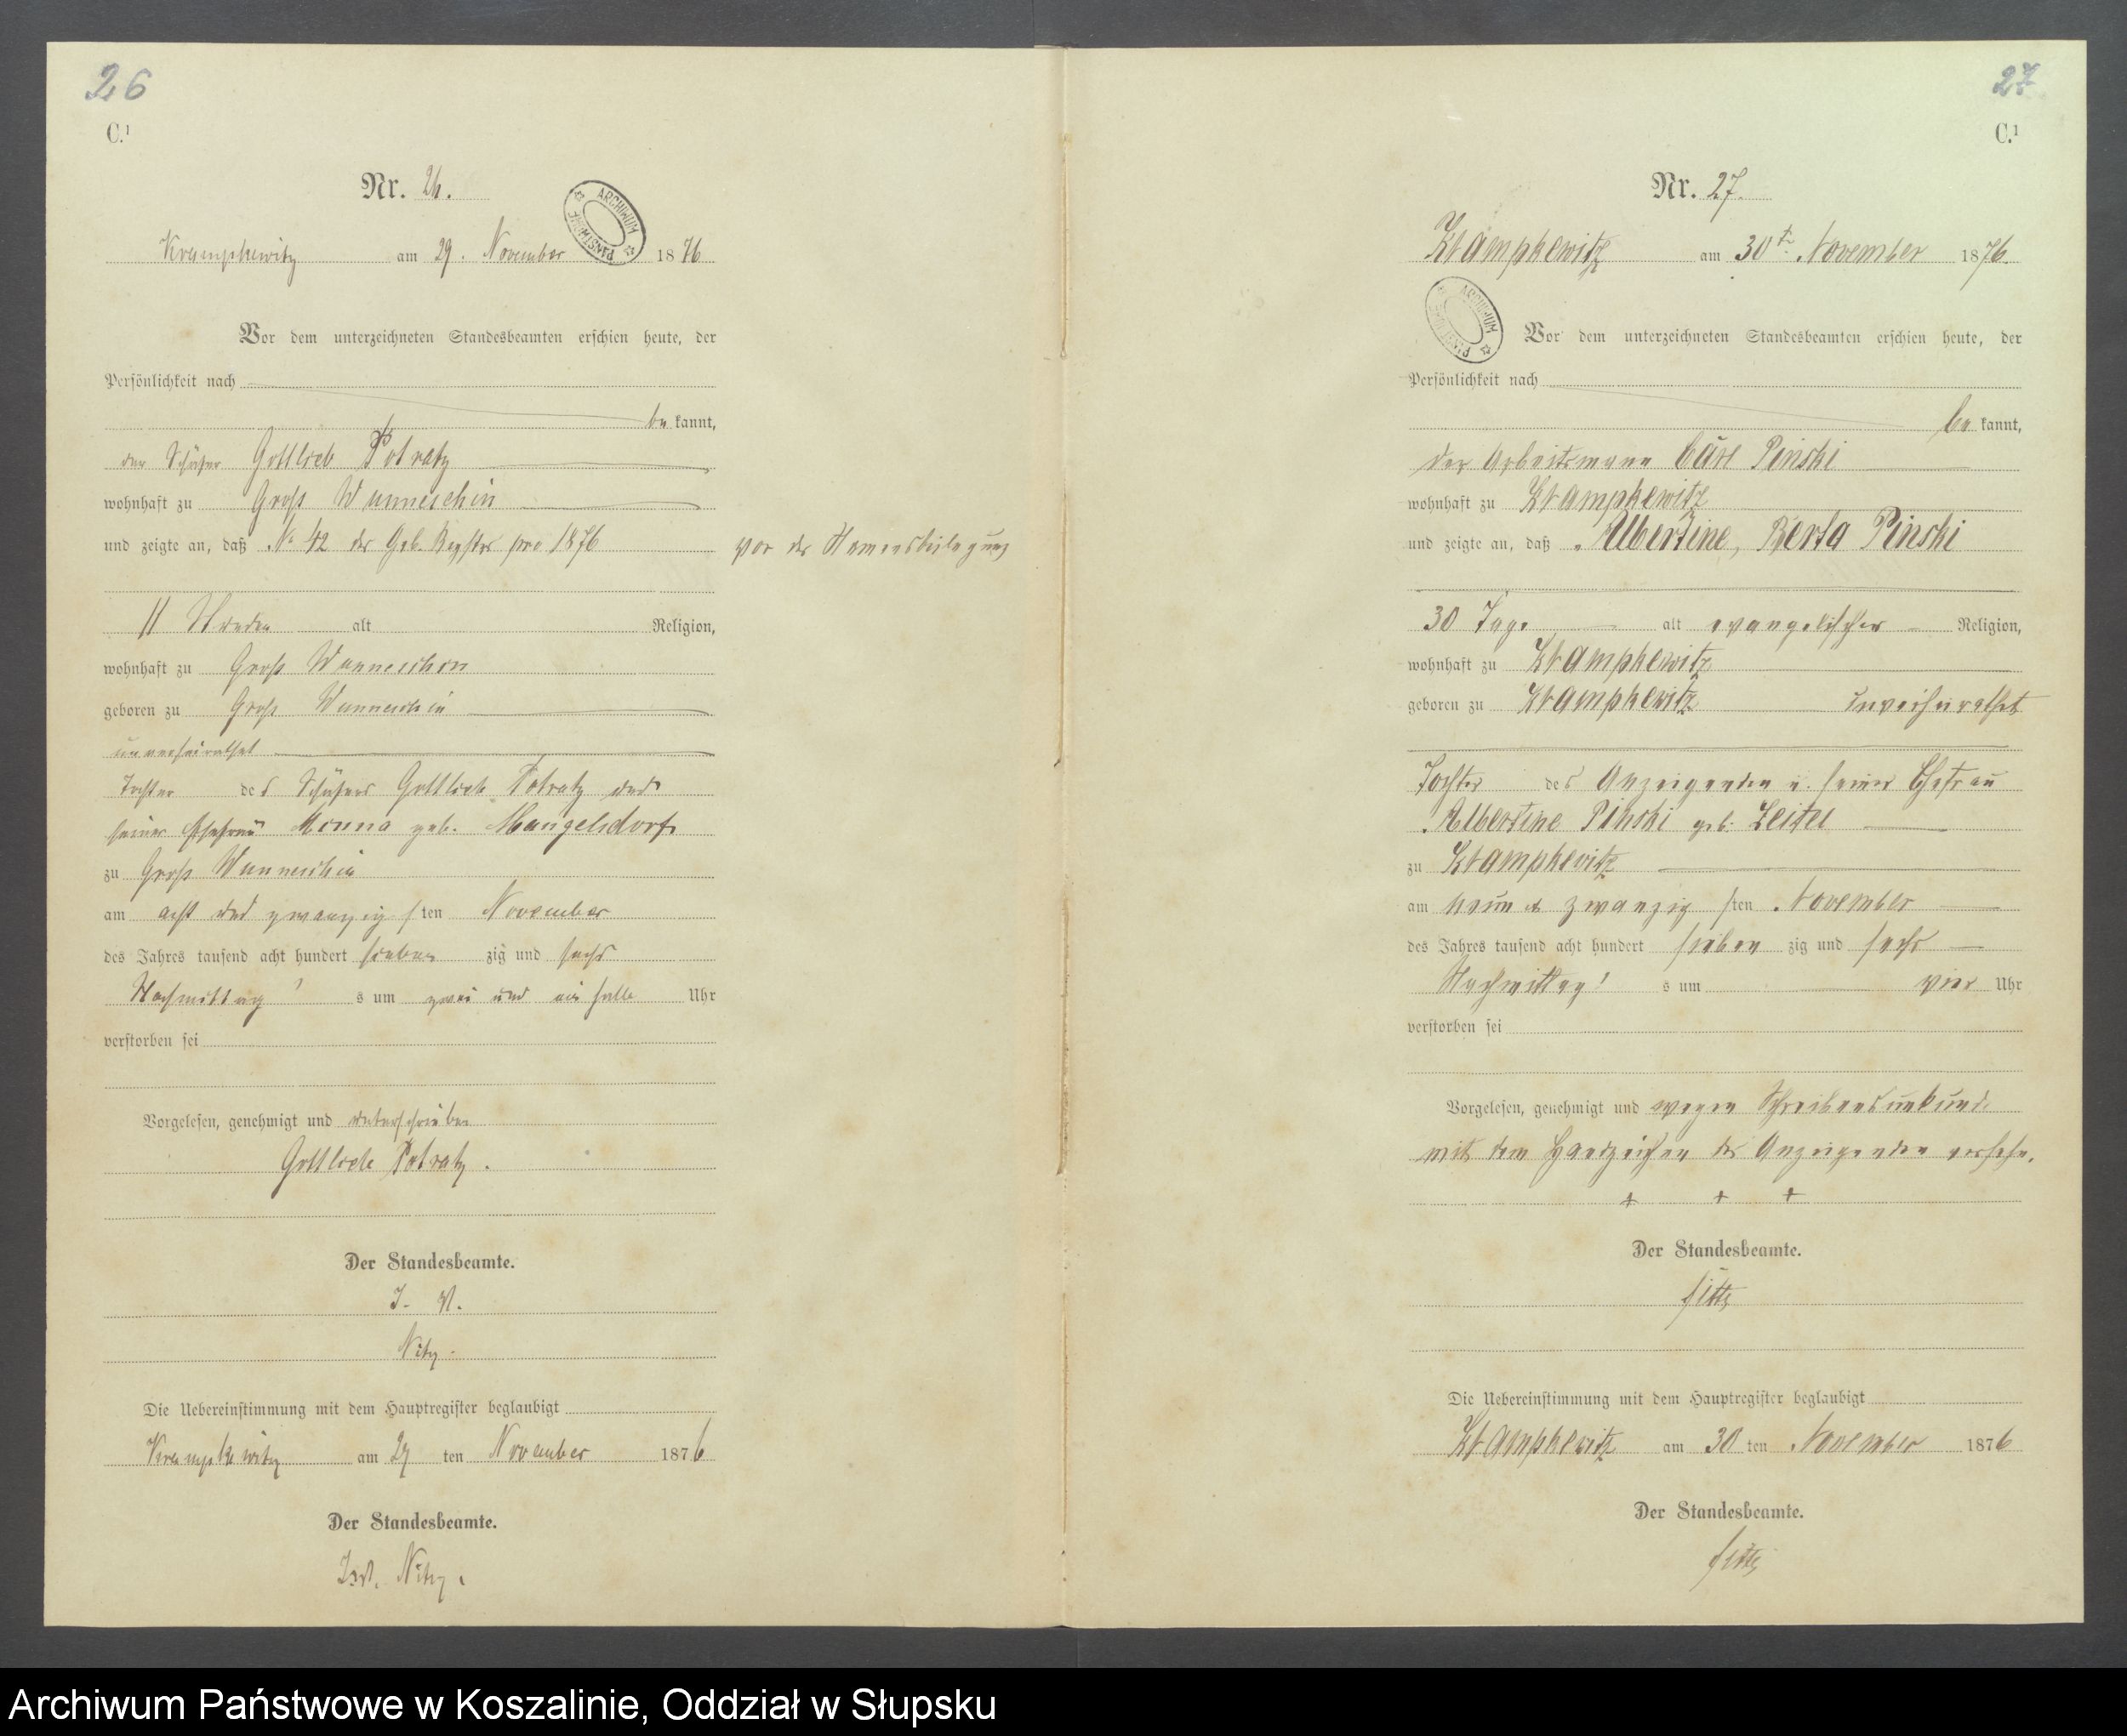 26
C.¹
Nr. 26.
ARCHIWUM PAŃSTWOWE
Krampkewitz am 29. November 1876
Vor dem unterzeichneten Standesbeamten erschien heute, der
Persönlichkeit nach
bekannt,
der Schäfer Gottlieb Potratz
wohnhaft zu Groß Wunneschin
und zeigte an, daß No 42 des Geb. Register pro 1876 vor der Namensbeilegung
11 Stunden alt Religion,
wohnhaft zu Groß Wunneschin
geboren zu Groß Wunneschin
unverheirathet
Tochter des Schäfers Gottlieb Potratz und
seiner Ehefrau Minna geb. Mangelsdorf
zu Groß Wunneschin
am acht und zwanzigsten November
des Jahres tausend acht hundert siebenzig und sechs
Nachmittags um zwei und ein halb Uhr
verstorben sei
Vorgelesen, genehmigt und unterschrieben
Gottlieb Potratz.
Der Standesbeamte.
I. V.
Nitz.
Die Uebereinstimmung mit dem Hauptregister beglaubigt
Krampkewitz am 29ten November 1876
Der Standesbeamte.
Nitz.
27
C.¹
Nr. 27.
Krampkewitz am 30t. November 1876.
ARCHIWUM PAŃSTWOWE
Vor dem unterzeichneten Standesbeamten erschien heute, der
Persönlichkeit nach
bekannt,
der Arbeitsmann Carl Pinski
wohnhaft zu Krampkewitz
und zeigte an, daß Albertine, Berta Pinski
30 Tage alt evangelischer Religion,
wohnhaft zu Krampkewitz
geboren zu Krampkewitz unverheirathet
Tochter des Anzeigenden u. seiner Ehefrau
Albertine Pinski geb. Zeitel
zu Krampkewitz
am neun u zwanzigsten November
des Jahres tausend acht hundert siebenzig und sechs
Nachmittags um vier Uhr
verstorben sei
Vorgelesen, genehmigt und wegen Schreibensunkunde
mit dem Handzeichen des Anzeigenden versehn.
+ + +
Der Standesbeamte.
Die Uebereinstimmung mit dem Hauptregister beglaubigt
Krampkewitz am 30ten November 1876
Der Standesbeamte.
Archiwum Państwowe w Koszalinie, Oddział w Słupsku